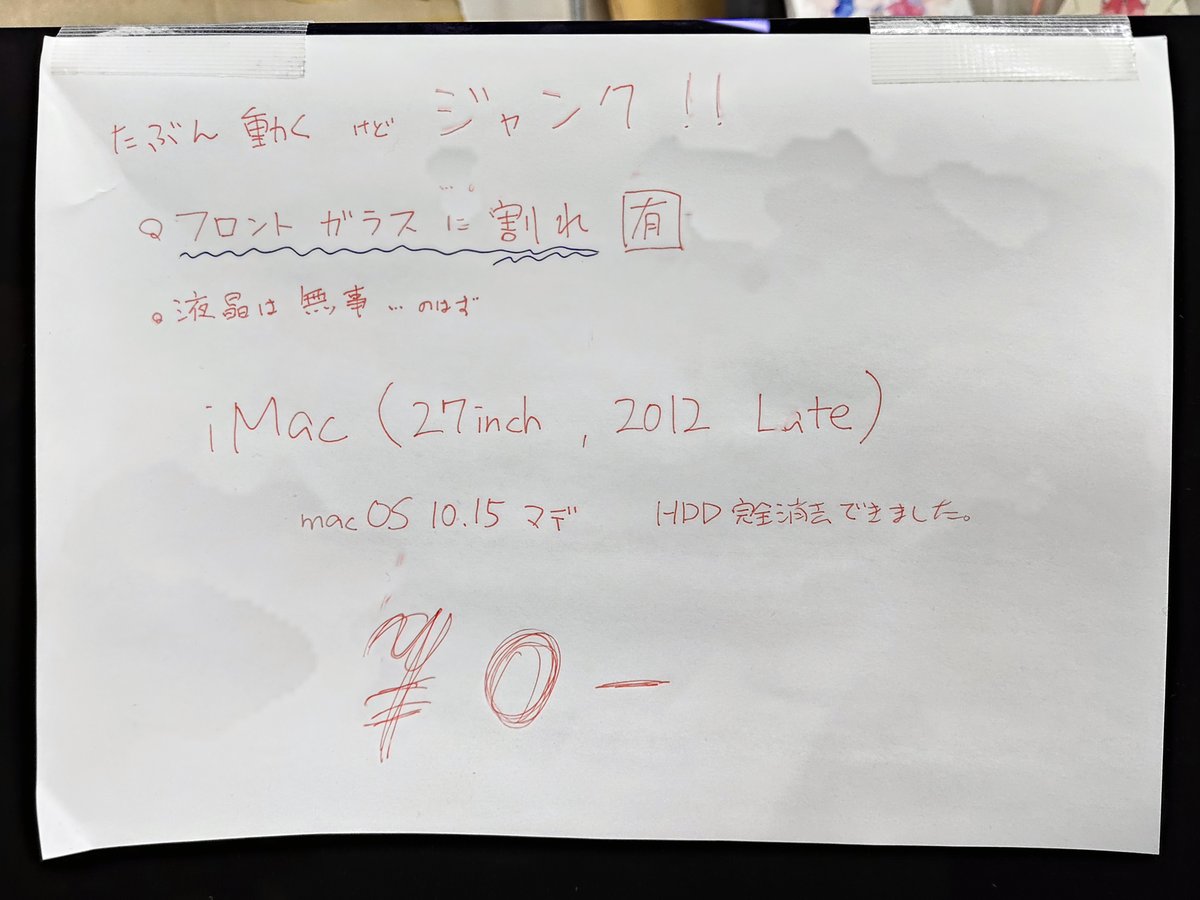 たぶん 動く けど ジャンク !!
。フロント ガラス に 割れ 有
。液晶は 無事… のはず
iMac (27inch , 2012 Late)
macOS 10.15 マデ HDD 完全消去できました。
¥0-